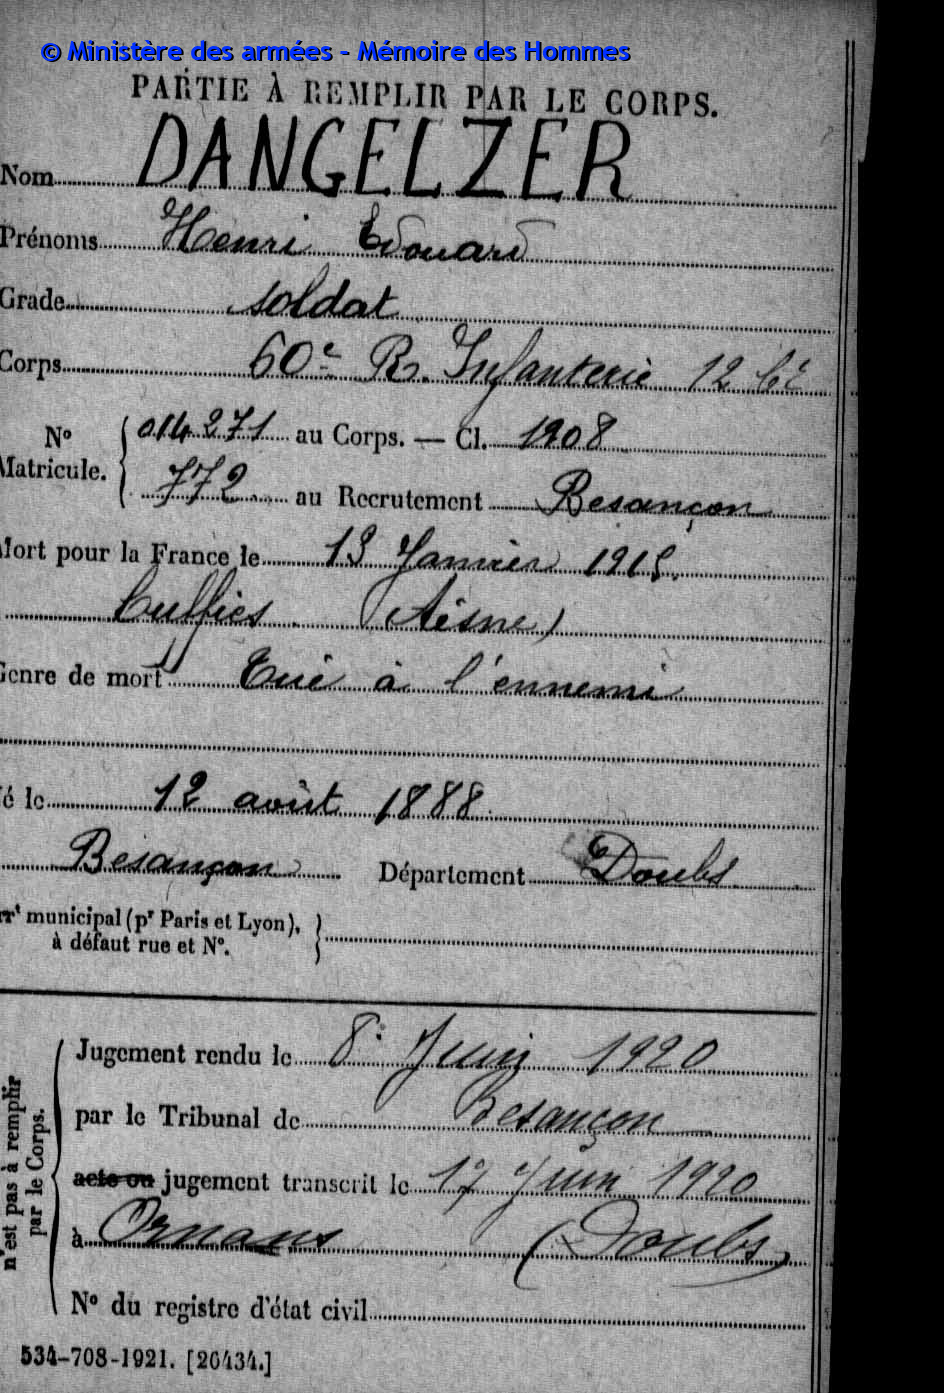 © Ministère des armées - Mémoire des Hommes
PARTIE À REMPLIR PAR LE CORPS.
Nom DANGELZER
Prénoms Henri Edouard
Grade soldat
Corps 60e R. Infanterie 12 Cie
No Matricule. { 014271 au Corps. — Cl. 1908
772 au Recrutement Besançon
Mort pour la France le 13 Janvier 1915
Cuffies (Aisne)
Genre de mort Tué à l'ennemi
é le 12 août 1888
Besançon Département Doubs
rrt municipal (pr Paris et Lyon),
à défaut rue et No.
n'est pas à remplir
par le Corps.
Jugement rendu le 8 Juin 1920
par le Tribunal de Besançon
acte ou jugement transcrit le 17 Juin 1920
à Ornans (Doubs)
No du registre d'état civil
534-708-1921. [26434.]